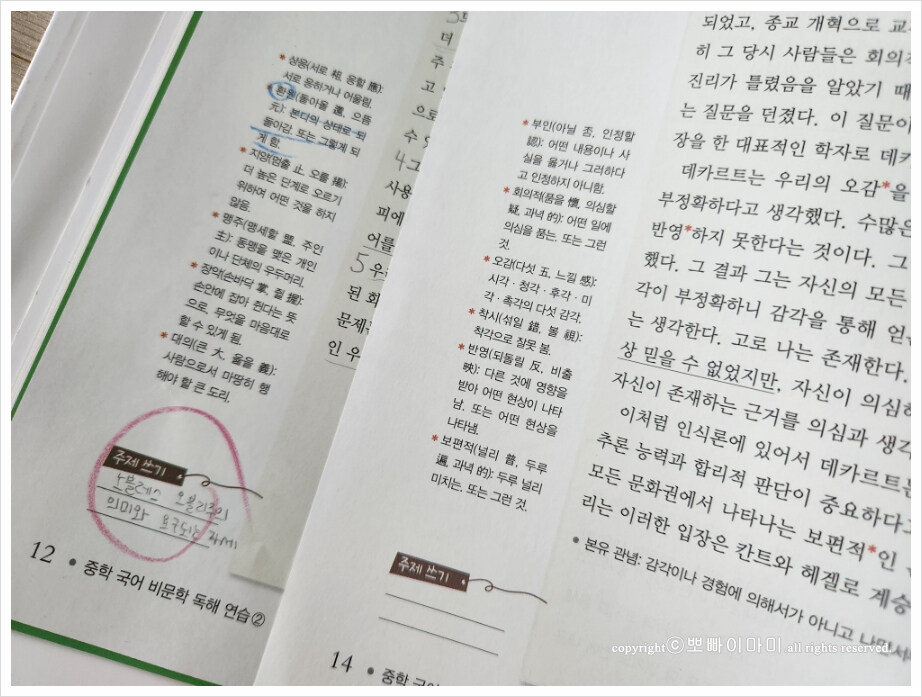 * 상응(서로 相, 응할 應):
서로 응하거나 어울림.
* 환원(돌아올 還, 으뜸
元): 본디의 상태로 되
돌아감. 또는 그렇게 되
게 함.
* 지양(멈출 止, 오를 揚):
더 높은 단계로 오르기
위하여 어떤 것을 하지
않음.
* 맹주(맹세할 盟, 주인
主): 동맹을 맺은 개인
이나 단체의 우두머리.
* 장악(손바닥 掌, 쥘 握):
손안에 잡아 쥔다는 뜻
으로, 무엇을 마음대로
할 수 있게 됨.
* 대의(큰 大, 옳을 義):
사람으로서 마땅히 행
해야 할 큰 도리.
주제 쓰기
노블레스 오블리주의
의미와 요구되는 자세
12 • 중학 국어 비문학 독해 연습②
더
주
고
으로
수 있
4 그
사용
피에
어를
5 우
된 회
문제
인 우
* 부인(아닐 否, 인정할
認): 어떤 내용이나 사
실을 옳거나 그러하다
고 인정하지 아니함.
* 회의적(품을 懷, 의심할
疑, 과녁 的): 어떤 일에
의심을 품는. 또는 그런
것.
* 오감(다섯 五, 느낄 感):
시각·청각·후각·미
각·촉각의 다섯 감각.
* 착시(섞일 錯, 볼 視):
착각으로 잘못 봄.
* 반영(되돌릴 反, 비출
映): 다른 것에 영향을
받아 어떤 현상이 나타
남. 또는 어떤 현상을
나타냄.
* 보편적(널리 普, 두루
遍, 과녁 的): 두루 널리
미치는. 또는 그런 것.
주제 쓰기
14 • 중학 국어
되었고, 종교 개혁으로 교
히 그 당시 사람들은 회의적
진리가 틀렸음을 알았기 때
는 질문을 던졌다. 이 질문이
장을 한 대표적인 학자로 데카
데카르트는 우리의 오감*을
부정확하다고 생각했다. 수많은
반영*하지 못한다는 것이다. 그
했다. 그 결과 그는 자신의 모든
각이 부정확하니 감각을 통해 얻
는 생각한다. 고로 나는 존재한다.
상 믿을 수 없었지만, 자신이 의심하
자신이 존재하는 근거를 의심과 생각
이처럼 인식론에 있어서 데카르트는
추론 능력과 합리적 판단이 중요하다고
모든 문화권에서 나타나는 보편적*인
리는 이러한 입장은 칸트와 헤겔로 계승
• 본유 관념: 감각이나 경험에 의해서가 아니고 나면서
copyright ⓒ 뽀빠이마미 all rights reserved.